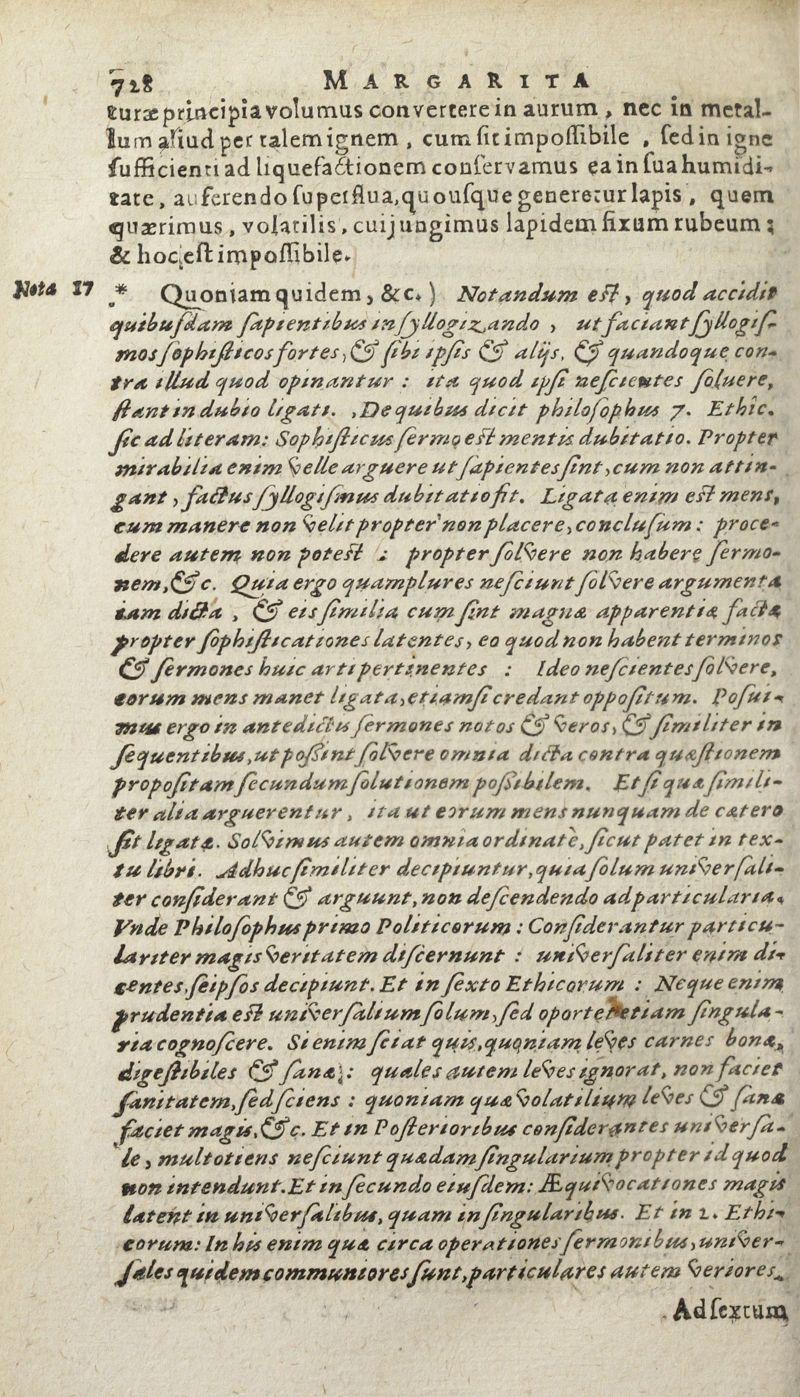 728 MARGARITA
turæ principia volumus convertere in aurum, nec in metal-
lum aliud per talem ignem, cum sit impossibile, sed in igne
sufficienti ad liquefactionem conservamus ea in sua humidi-
tate, auferendo superflua, quousque generetur lapis, quem
quærimus, volatilis, cui jungimus lapidem fixum rubeum;
& hoc est impossibile.
Nota 17 * Quoniam quidem, &c.) Notandum est, quod accidit
quibusdam sapientibus in syllogizando, ut faciant syllogis-
mos sophisticos fortes, & sibi ipsis & alijs, & quandoque con-
tra illud quod opinantur: ita quod ipsi nescientes soluere,
stant in dubio ligati. De quibus dicit philosophus 7. Ethic.
sic ad literam: Sophisticus sermo est mentis dubitatio. Propter
mirabilia enim velle arguere ut sapientes sint, cum non attin-
gant, factus syllogismus dubitatio fit. Ligata enim est mens,
cum manere non velit propter non placere, conclusum: proce-
dere autem non potest: propter solvere non habere sermo-
nem, &c. Quia ergo quamplures nesciunt solvere argumenta
tam dicta, & eis similia cum sint magnæ apparentiæ facta
propter sophisticationes latentes, eo quod non habent terminos
& sermones huic arti pertinentes: Ideo nescientes solvere,
eorum mens manet ligata, etiamsi credant oppositum. Posui-
mus ergo in antedictis sermones notos & veros, & similiter in
sequentibus, ut possint solvere omnia dicta contra quæstionem
propositam secundum solutionem possibilem. Et si quæ simili-
ter alia arguerentur, ita ut eorum mens nunquam de cætero
sit ligata. Solvimus autem omnia ordinate, sicut patet in tex-
tu libri. Adhuc similiter decipiuntur, quia solum universali-
ter considerant & arguunt, non descendendo ad particularia.
Vnde Philosophus primo Politicorum: Considerantur particu-
lariter magis veritatem discernunt: universaliter enim di-
centes, seipsos decipiunt. Et in sexto Ethicorum: Neque enim
prudentia est universalium solum, sed oportet etiam singula-
ria cognoscere. Si enim sciat quis, quoniam leves carnes bonæ,
digestibiles & sanæ: quales autem leves ignorat, non faciet
sanitatem, sed sciens: quoniam quæ volatilium leves & sanæ
faciet magis, &c. Et in Posterioribus considerantes universa-
le, multotiens nesciunt quædam singularium propter id quod
non intendunt. Et in secundo eiusdem: Æquivocationes magis
latent in universalibus, quam in singularibus. Et in 2. Ethi-
corum: In his enim quæ circa operationes sermonibus, univer-
sales quidem communiores sunt, particulares autem veriores.
Ad sextum